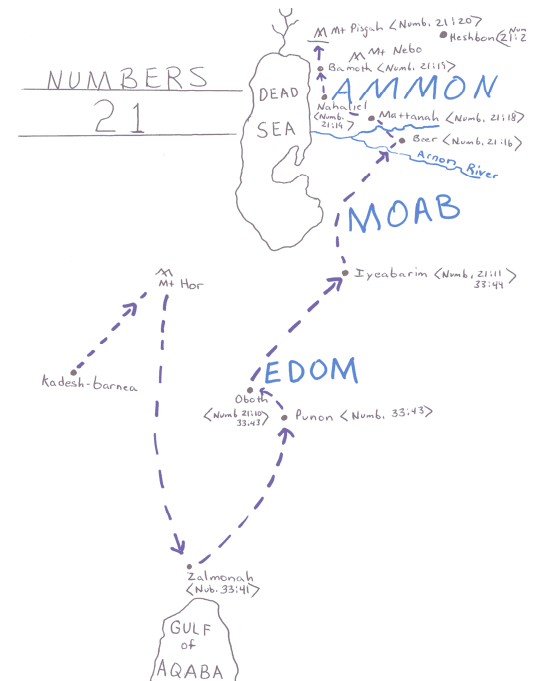 Mt Pisgah <Numb. 21:20>
Heshbon <Num
21:2
Mt Nebo
Bamoth <Numb. 21:19>
NUMBERS
21
DEAD
SEA
AMMON
Nahaliel
<Numb.
21:19>
Mattanah <Numb. 21:18>
Beer <Numb. 21:16>
Arnon River
MOAB
Iyeabarim <Numb. 21:11
33:44>
Mt Hor
Kadesh-barnea
EDOM
Oboth
<Numb 21:10
33:43>
Punon <Numb. 33:43>
Zalmonah
<Nub. 33:41>
GULF
of
AQABA